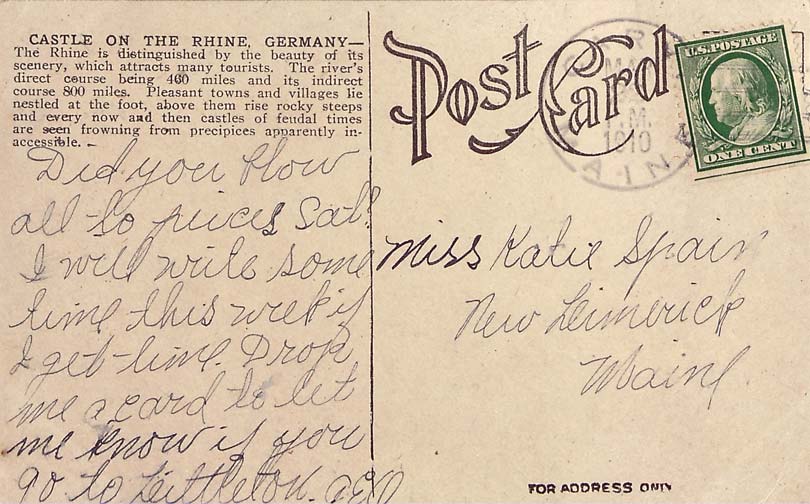 CASTLE ON THE RHINE, GERMANY—
The Rhine is distinguished by the beauty of its
scenery, which attracts many tourists. The river's
direct course being 460 miles and its indirect
course 800 miles. Pleasant towns and villages lie
nestled at the foot, above them rise rocky steeps
and every now and then castles of feudal times
are seen frowning from precipices apparently in-
accessible. —
Did you blow
all to pieces Sat?
I will write some
time this week if
I get time. Drop
me a card to let
me know if you
go to Littleton.
Post Card
1910
MAINE
U.S. POSTAGE
ONE CENT
Miss Katie Spain
New Limerick
Maine.
FOR ADDRESS ONLY